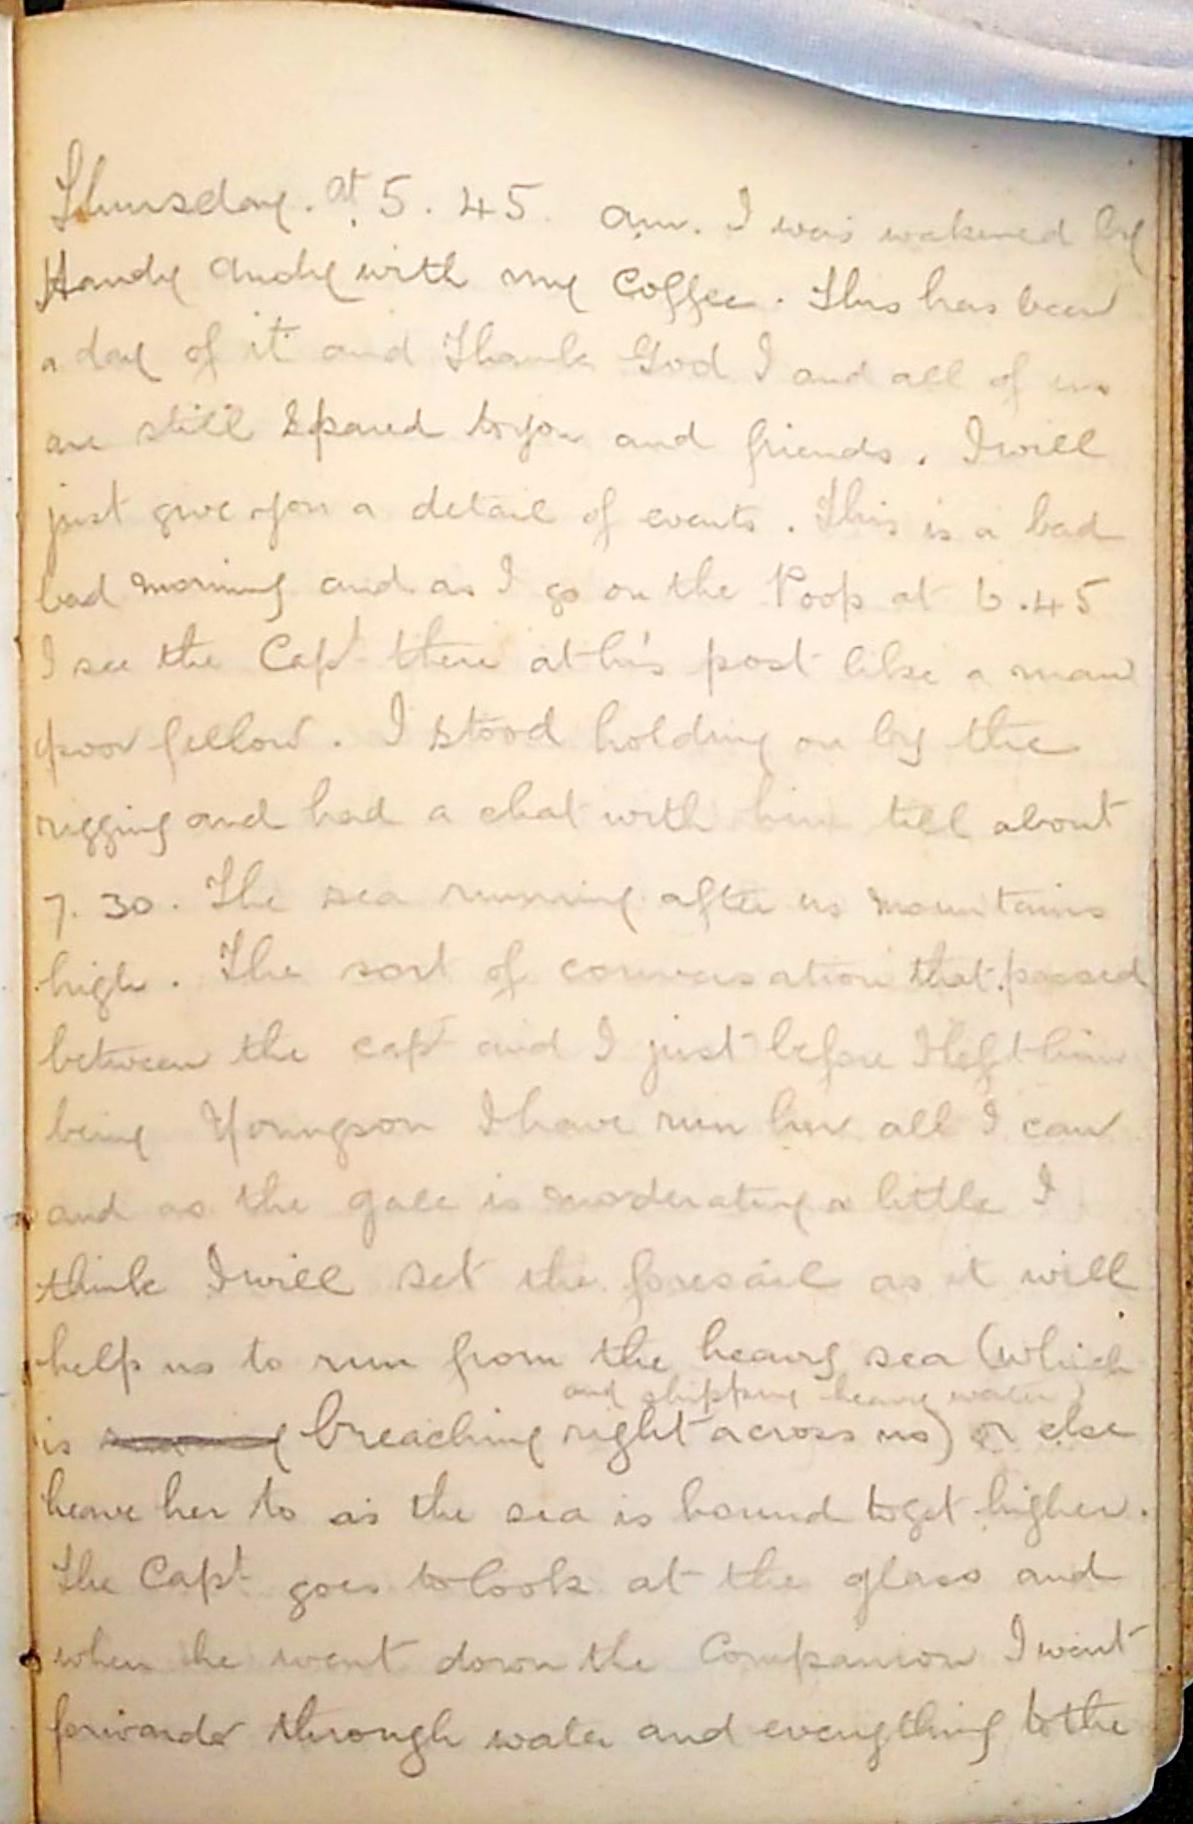 Thursday. at 5. 45 am. I was wakened by
Handy Andy with my Coffee. This has been
a day of it and Thank God I and all of us
are still spared to you and friends. I will
just give you a detail of events. This is a bad
bad morning and as I go on the Poop at 6.45
I see the Capt there at his post like a man
poor fellow. I stood holding on by the
rigging and had a chat with him till about
7. 30. The sea running after us mountains
high. The sort of conversation that passed
between the capt and I just before I left him
being Youngson I have run her all I can
and as the gale is moderating a little I
think I will set the foresail as it will
help us to run from the heavy sea (which
and shipping heavy water
is breaching right across us) or else
heave her to as the sea is bound to get higher.
The Capt goes to look at the glass and
when he went down the Companion I went
forward through water and everything to the